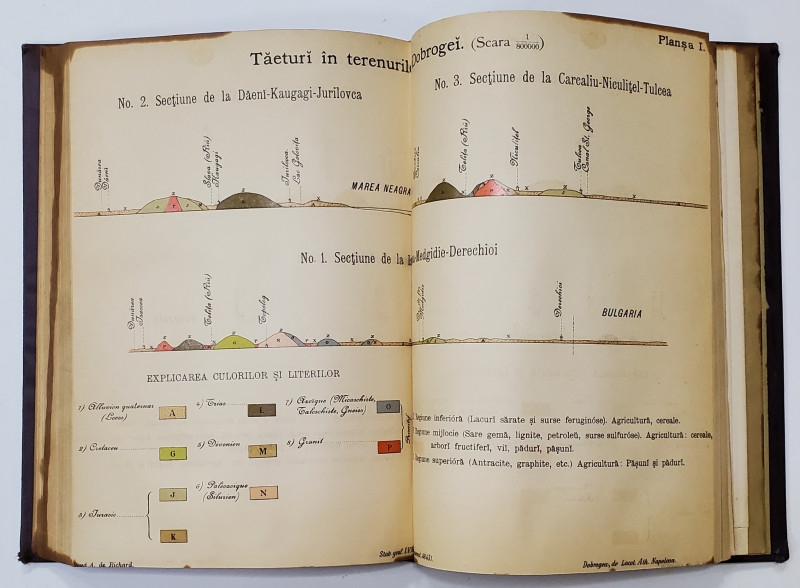 Tăeturĭ în terenuril Dobrogeĭ. (Scara 1/800000) Planșa I.
No. 2. Secțiune de la Dăenĭ-Kaugagi-Jurilovca
No. 3. Secțiune de la Carcaliu-Niculițel-Tulcea
Dunărea
Dăeni
Slava (Rîŭ)
Kaugagi
Jurilovca
Lac Golovița
MAREA NEAGRA
Telița (Rîŭ)
Niculițel
Tulcea
Canal St. George
No. 1. Secțiune de la Medgidie-Derechioi
Dunărea
Telița (Rîŭ)
Toplog
Medgidie
Derechioi
BULGARIA
EXPLICAREA CULORILOR ȘI LITERILOR
1) Alluvion quaternar (Loess) A
2) Cretaceu G
3) Jurasic J
K
4) Trias L
5) Devonien M
6) Paleozoique (Silurien) N
7) Azoique (Micaschiste, Talcschiste, Gneiss) O
8) Granit P
Regiune inferióră (Lacurĭ sărate și surse feruginóse). Agricultură, cereale.
Regiune mijlocie (Sare gemă, lignite, petroleŭ, surse sulfuróse). Agricultură: cereale,
arborĭ fructiferĭ, viĭ, pădurĭ, pășunĭ.
Regiune superióră (Antracite, graphite, etc.) Agricultură: Pășunĭ și pădurĭ.
A. de Richard.
Stab graf. I.V.
Dobrogea, de Locot. Ath. Napolean.